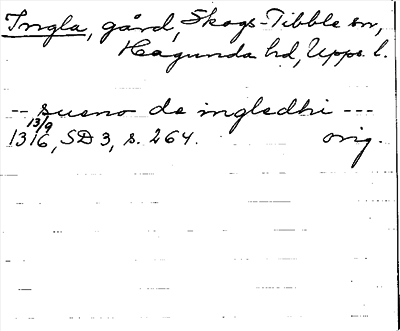 Ingla, gård, Skogs-Tibble sn,
Hagunda hd, Upps. l.
-- sueno de ingledhi ---
13/9
1316, SD 3, s. 264. orig.